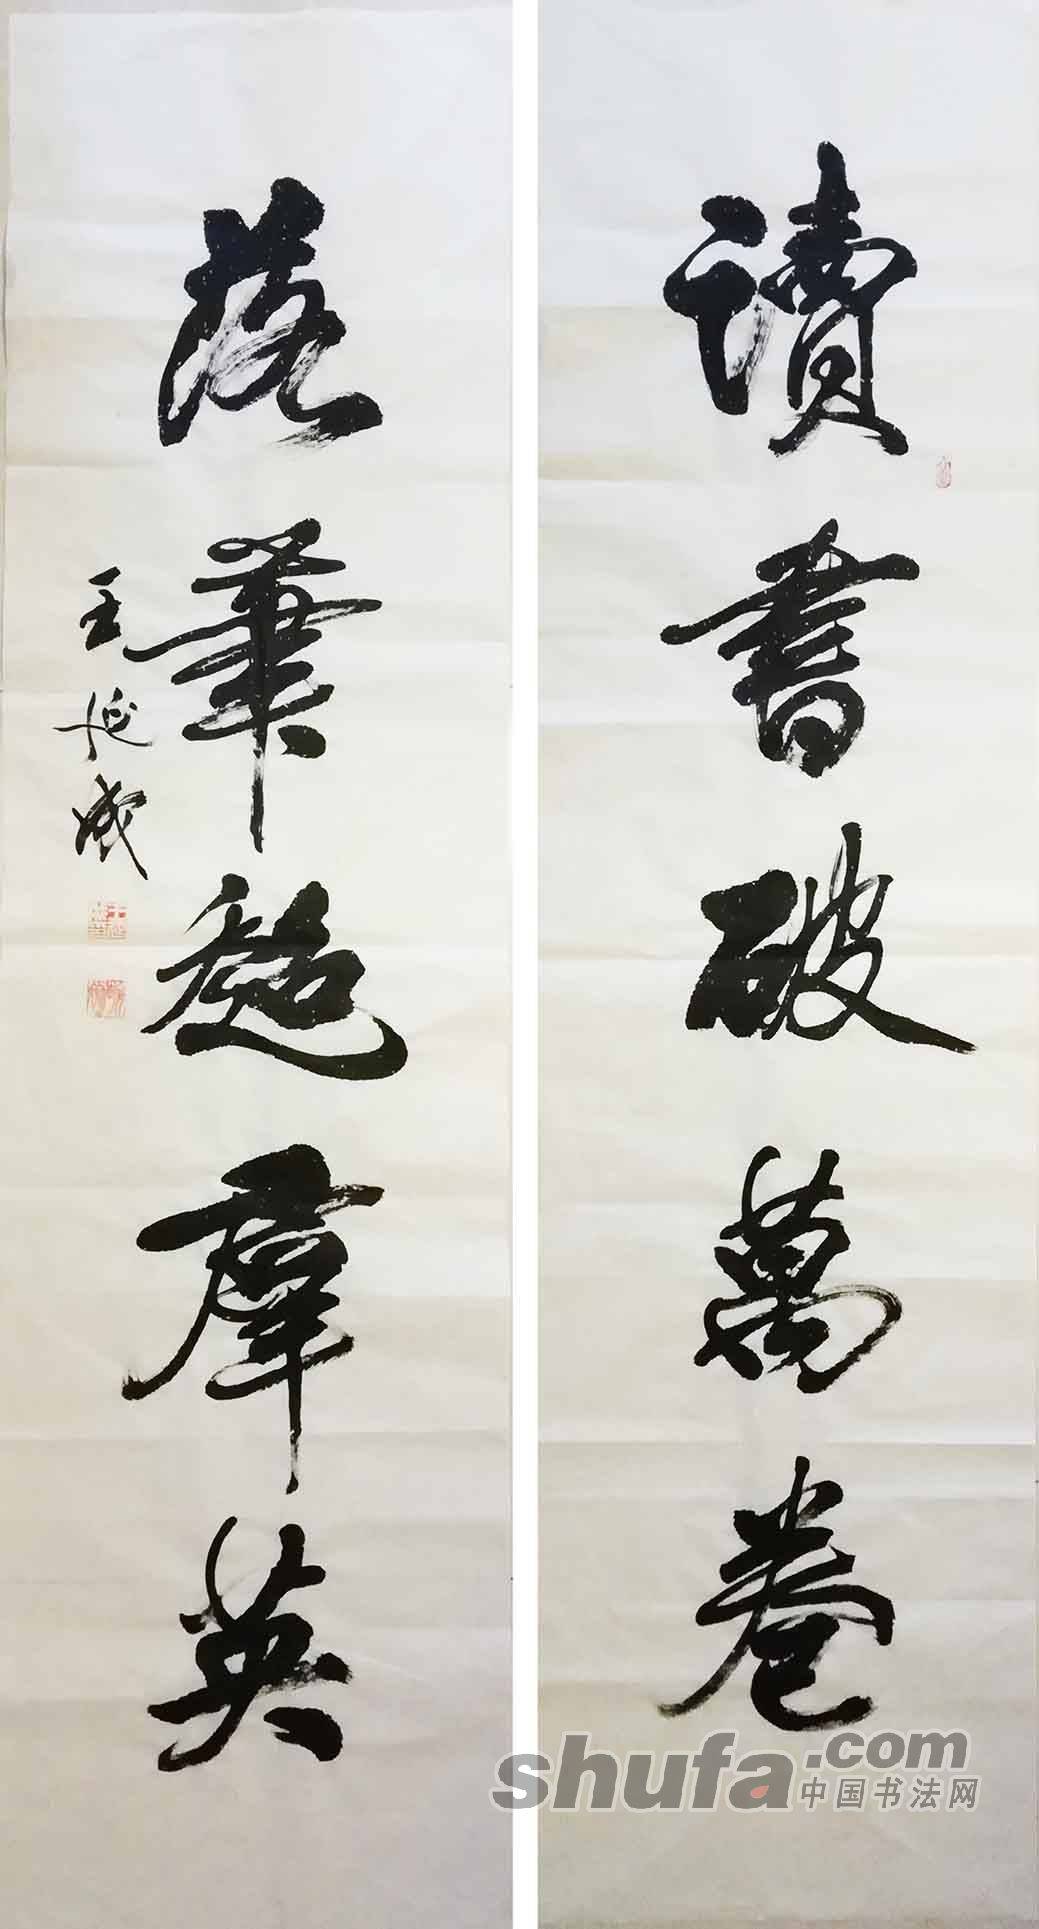 讀書破萬卷
落筆超群英
王延成
shufa.com
中国书法网